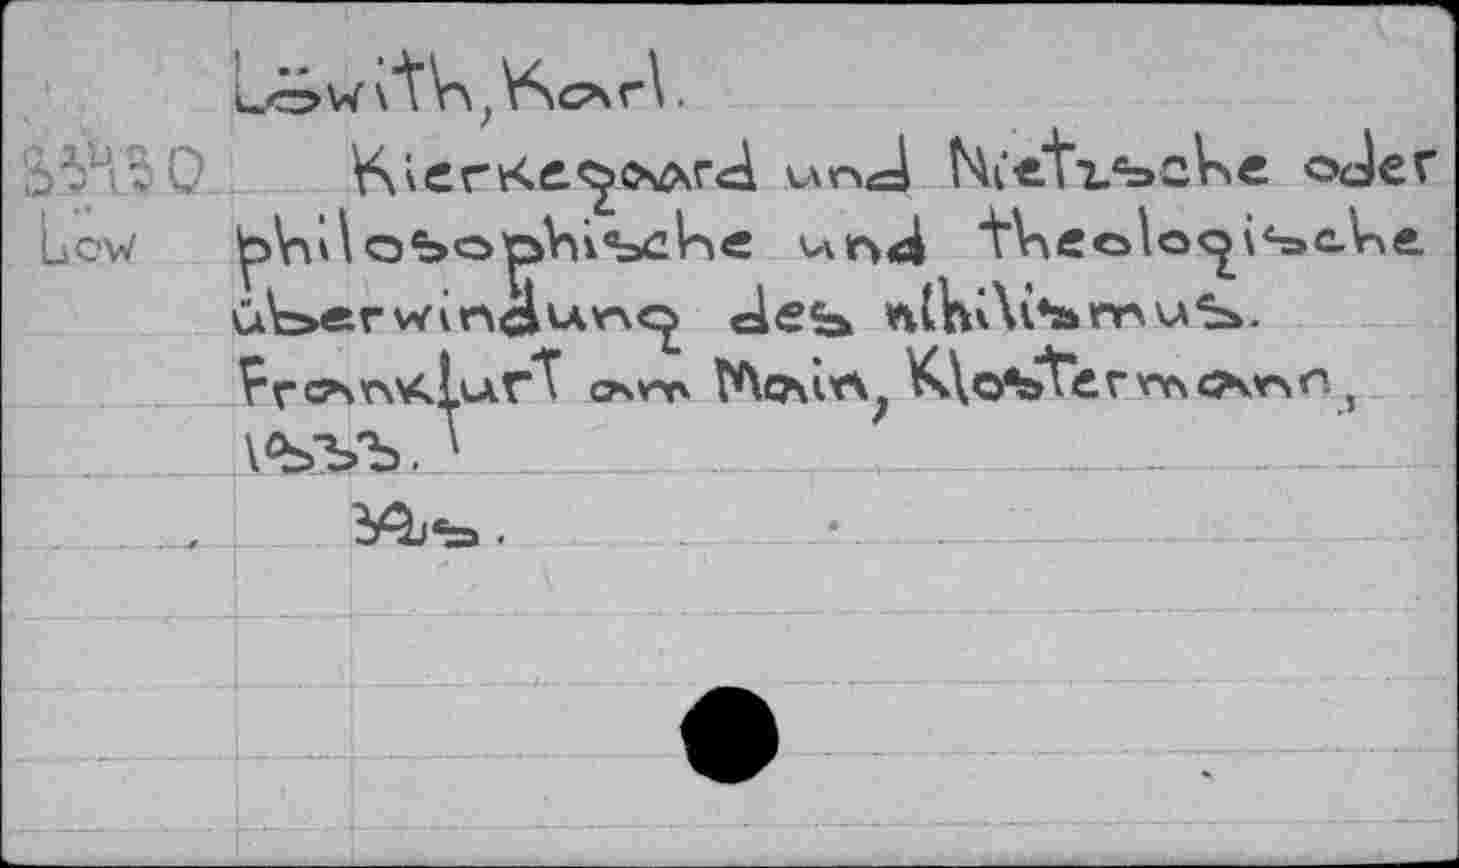 Löwith, Karl.
Kierkegaard und Nietzsche oder
Löw philosophische und theologische
überwindung des nihilismus.
Frankfurt am Main, Klostermann,
1933.
32s.